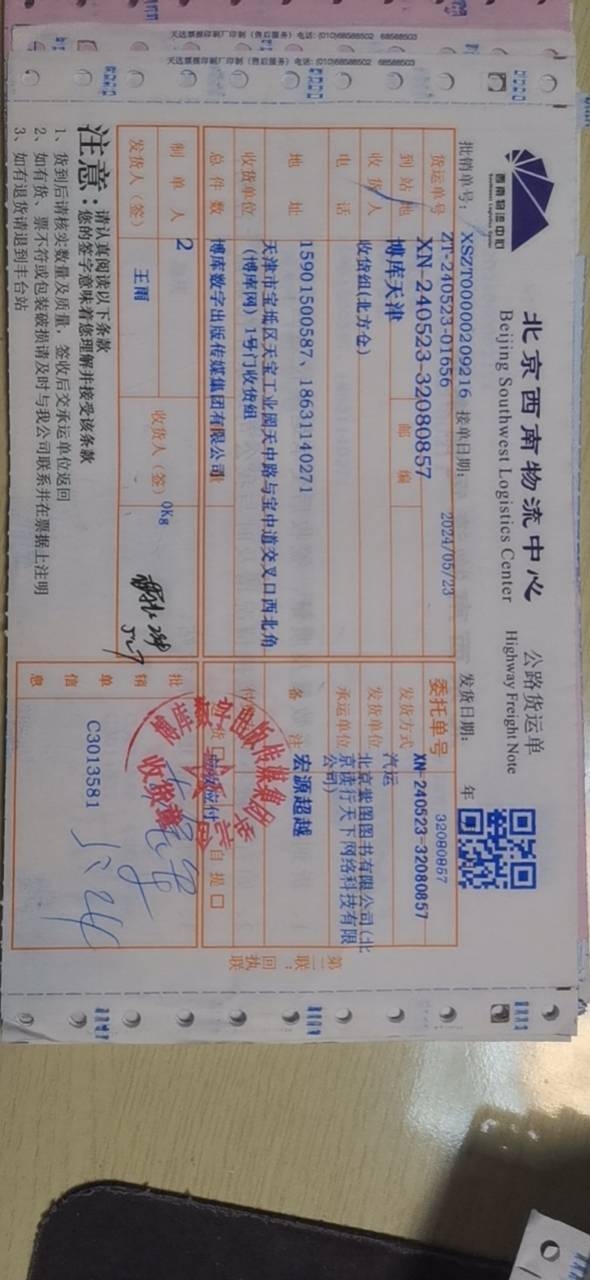 天达票据印刷厂印制（售后服务）电话: (010)68588502 68588503
天达票据印刷厂印制（售后服务）电话: (010)68588502 68588503
西南物流中心
北京西南物流中心 公路货运单
Beijing Southwest Logistics Center Highway Freight Note
批销单号： XSZT00000209216 接单日期： 2024/05/23 发货日期： 年
货运单号 ZT-240523-01656
XN-240523-32080857
委托单号 32080857
XN-240523-32080857
到站地 博库天津 邮编
发货方式 汽运
收货人 收货组(北方仓)
发货单位 北京紫图图书有限公司(北京读行天下网络科技有限公司)
电话 15901500587、18631140271
承运单位
地址 天津市宝坻区天宝工业园天中路与宝中道交叉口西北角(博库网) 1号门收货组
备注 宏源超越
收货单位 博库数字出版传媒集团有限公司
总件数 2
自提口
制单人 王雨
0Kg
发货人（签）
收货人（签）
批销单信息 C3013581
收货章
5.24
第二联：回执联
注意：请认真阅读以下条款
您的签字意味着您理解并接受该条款
1、货到后请核实数量及质量，签收后交承运单位返回
2、如有货、票不符或包装破损请及时与我公司联系并在票据上注明
3、如有退货请退到丰台站